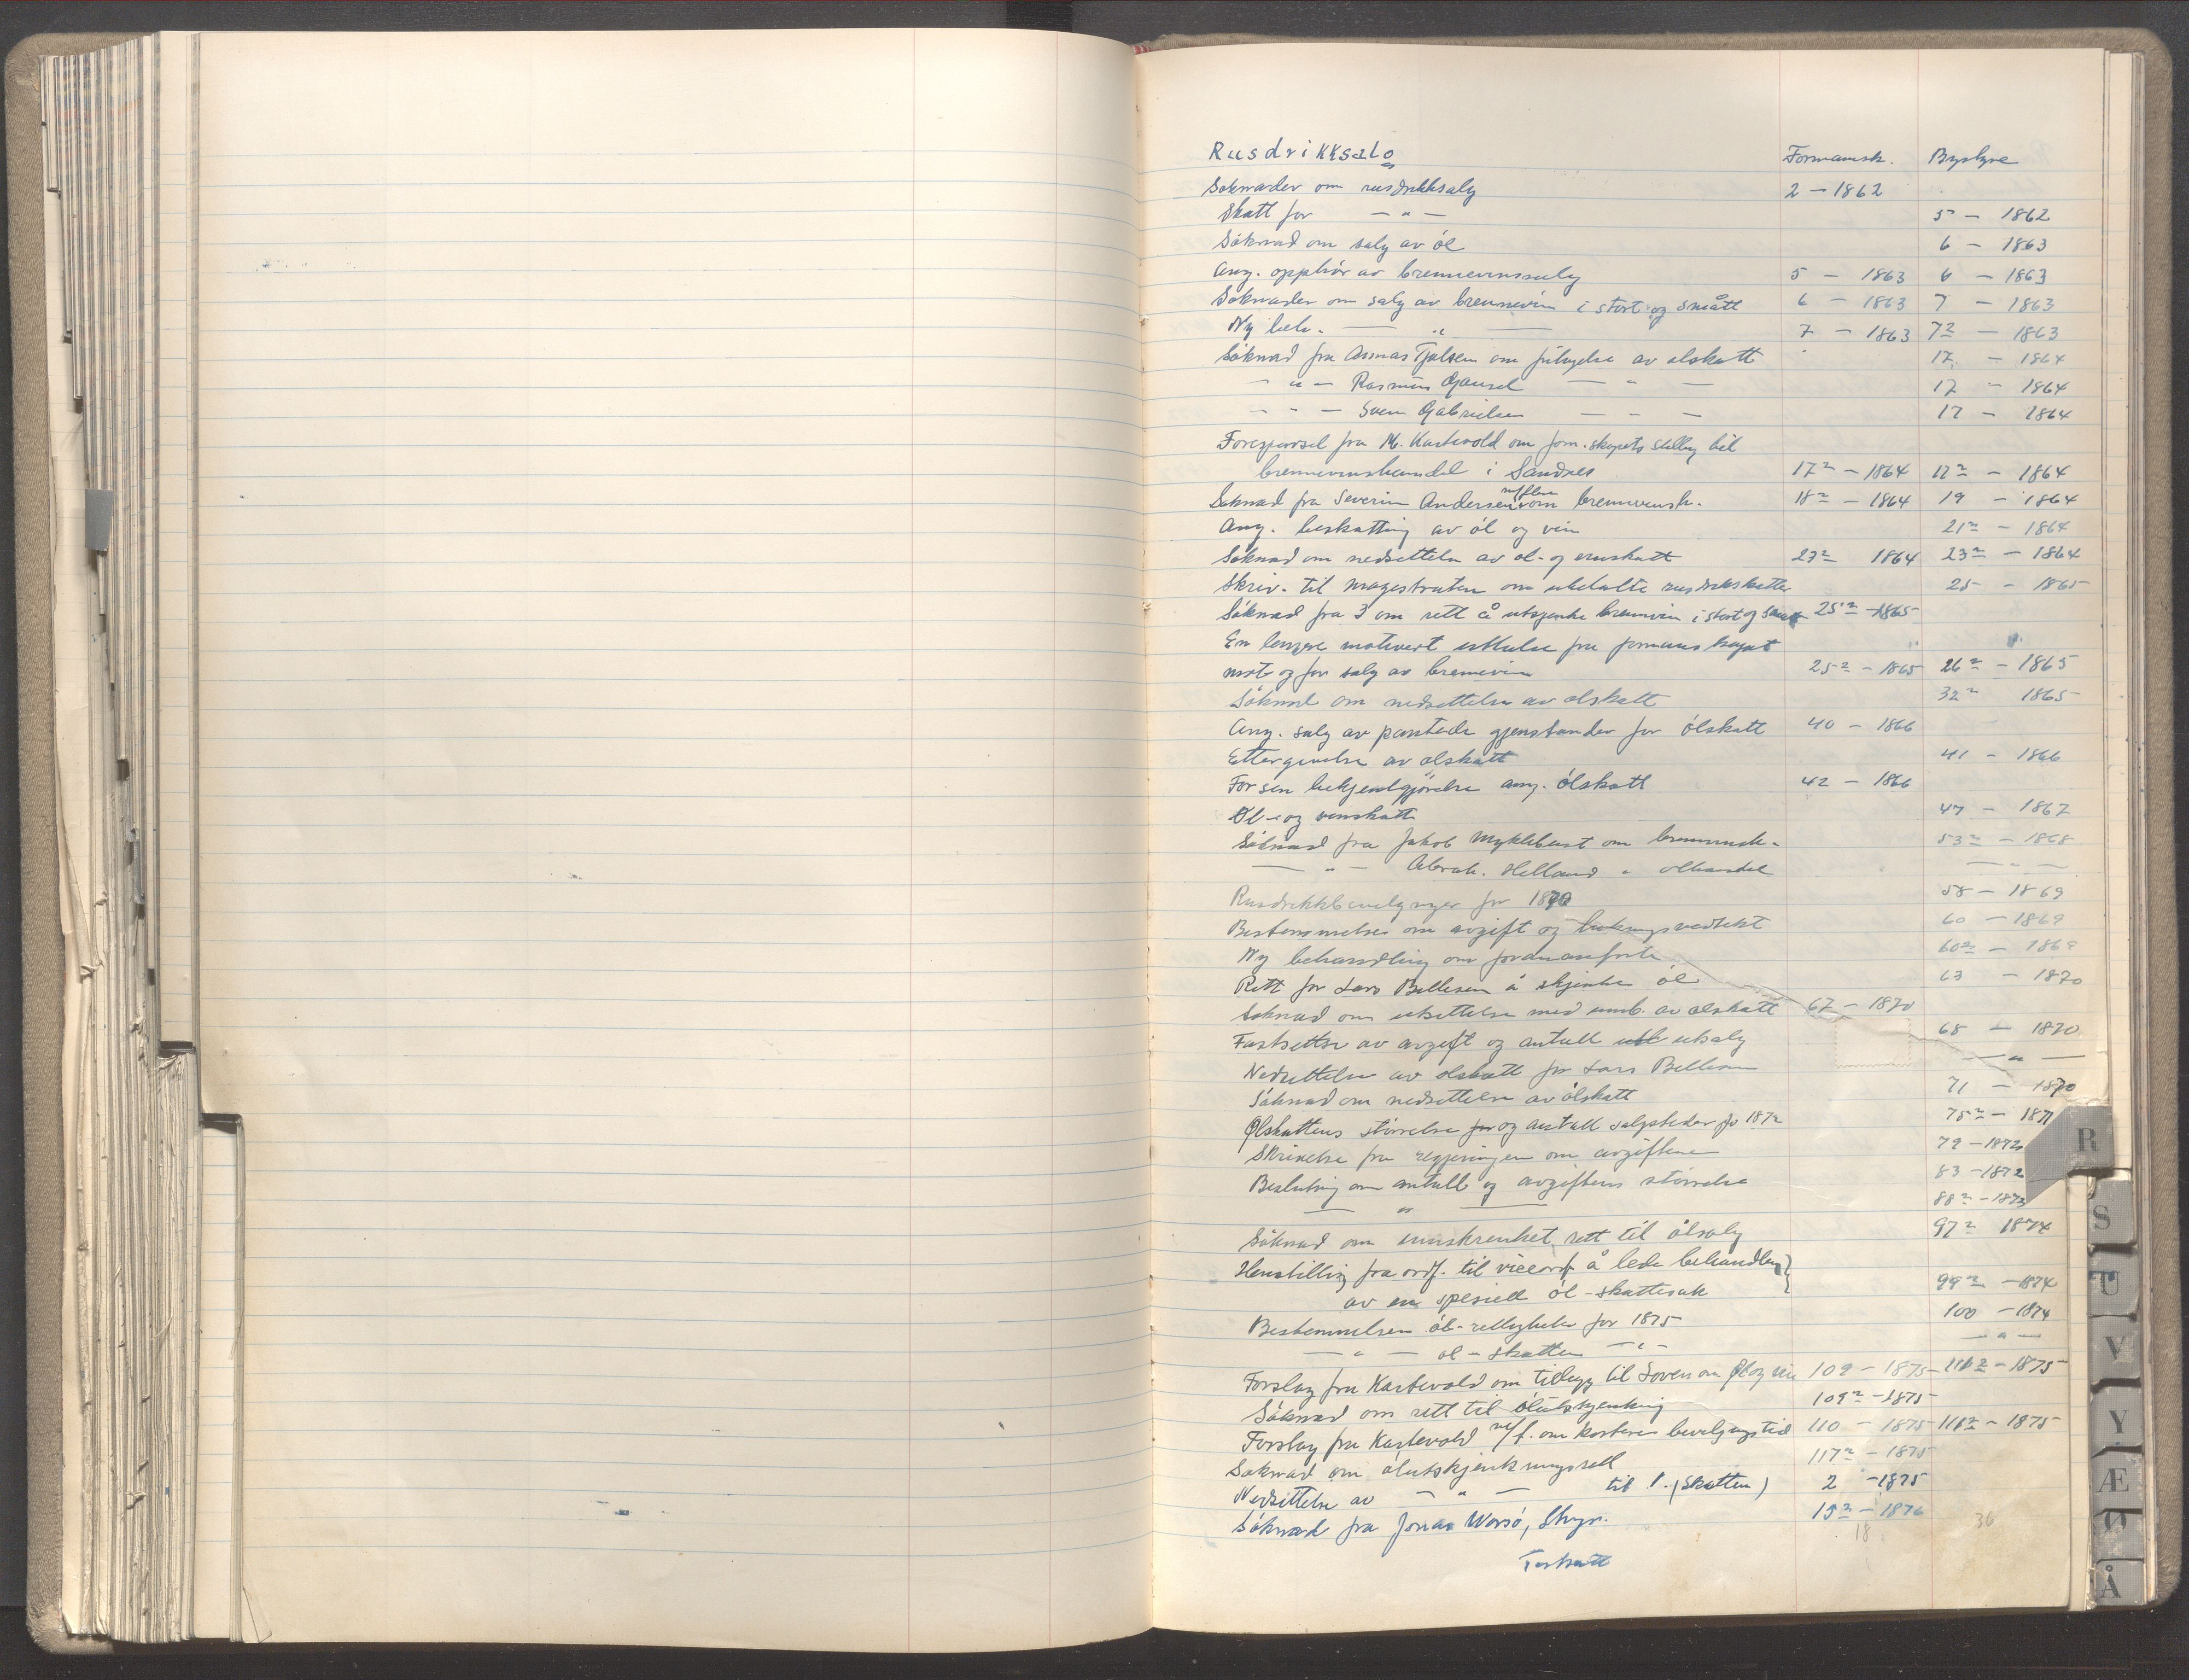 Rusdrikksalg Formannsk. Bystyre
Søknader om rusdrikksalg 2 - 1862
Skatt for - " - 5 - 1862
Søknad om salg av øl 6 - 1863
Ang. opphør av brennevinssalg 5 - 1863 6 - 1863
Søknader om salg av brennevin i stort og smått 6 - 1863 7 - 1863
Ny beh. - " - 7 - 1863 72 - 1863
Søknad fra Asmas Tjølsen om av ølskatt 17 - 1864
- " - Rasmus Gausel - " - 17 - 1864
- " - Sven Gabrielsen - " - 17 - 1864
Forespørsel fra M. Kartevold om form.skapets stilling til
brennevinshandel i Sandnes 172 - 1864 172 - 1864
Søknad fra Severin Andersen m/flere om brennevinsh. 182 - 1864 19 - 1864
Ang. beskatting av øl og vin 212 - 1864
Søknad om nedsettelse av øl- og vinskatt 232 1864 232 - 1864
Skriv. til magistraten om ubetalte rusdrikskatter 25 - 1865
Søknad fra 3 om rett å utskjenke brennevin i stort og smått 252 - 1865
En lengre motivert uttalelse fra formannskapet
mot og for salg av brennevin 252 - 1865 262 - 1865
Søknad om nedsettelse av ølskatt 322 1865
Ang. salg av pantede gjenstander for ølskatt 40 - 1866
Ettergivelse av ølskatt 41 - 1866
For sen bekjentgjørelse ang. ølskatt 42 - 1866
Øl- og vinskatt 47 - 1867
Søknad fra Jakob Myklebust om brennevinsh. 532 - 1868
- " - Abrah. Helland " ølhandel - " -
Rusdrikkbevilgninger for 1870 58 - 1869
Bestemmelser om avgift og vedtekt 60 - 1869
Ny behandling om 602 - 1869
Rett for Lars Bellesen å skjenke øl 63 - 1870
Søknad om utsettelse med innb. av ølskatt 67 - 1870
Fastsettse av avgift og antall utsalg 68 - 1870
Nedsettelse av ølskatt for Lars Bellesen - " -
Søknad om nedsettelse av ølskatt 71 - 1870
Ølskattens størrelse og antall salgsteder for 1872 752 - 1871
Skrivelse fra regjeringen om avgiftene 79 - 1872
Beslutning om antall og avgiftens størrelse 83 - 1872
- " - 882 - 1873
Søknad om innskrenket rett til ølsalg 972 1874
Henstilling fra ordf. til viceordf. å lede behandling
av en spesiell øl-skattesak 992 - 1874
Bestemmelsen øl-rettigheter for 1875 100 - 1874
- " - øl-skatten - " - - " -
Forslag fra Kartevold om tillegg til Loven om Øl og vin 109 - 1875 1112 - 1875
Søknad om rett til ølutskjenking 1092 - 1875
Forslag fra Kartevold m/f. om kortere bevilgningstid 110 - 1875 1112 - 1875
Søknad om ølutskjenkningsrett 1172 - 1875
Nedsettelse av - " - til 1. (Skatten) 2 - 1875
Søknad fra Jonas Worsø, Stvgr. 152 - 1876
18 36
Forts.
R
S
U
V
Y
Æ
Ø
Å